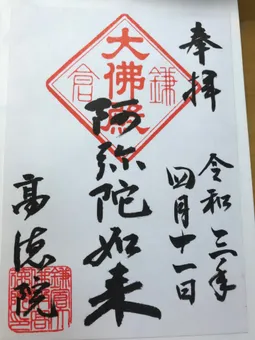 奉拝
令和三年
四月十一日
大佛殿
鎌倉
阿弥陀如来
高徳院